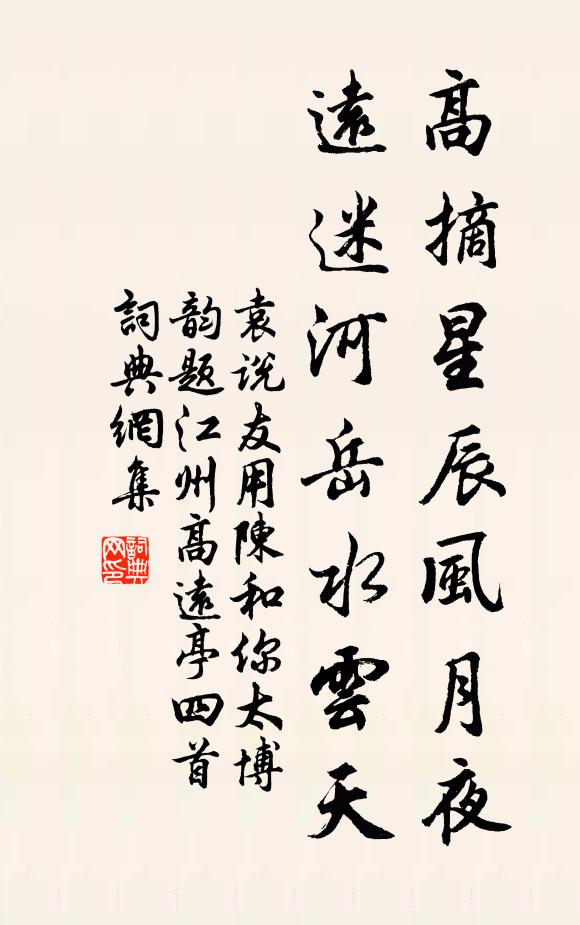 高摘星辰風月夜
遠迷河岳水雲天
袁说友用陳和你太博
韵题江州高遠亭四首
詞典網集
詞典
网印